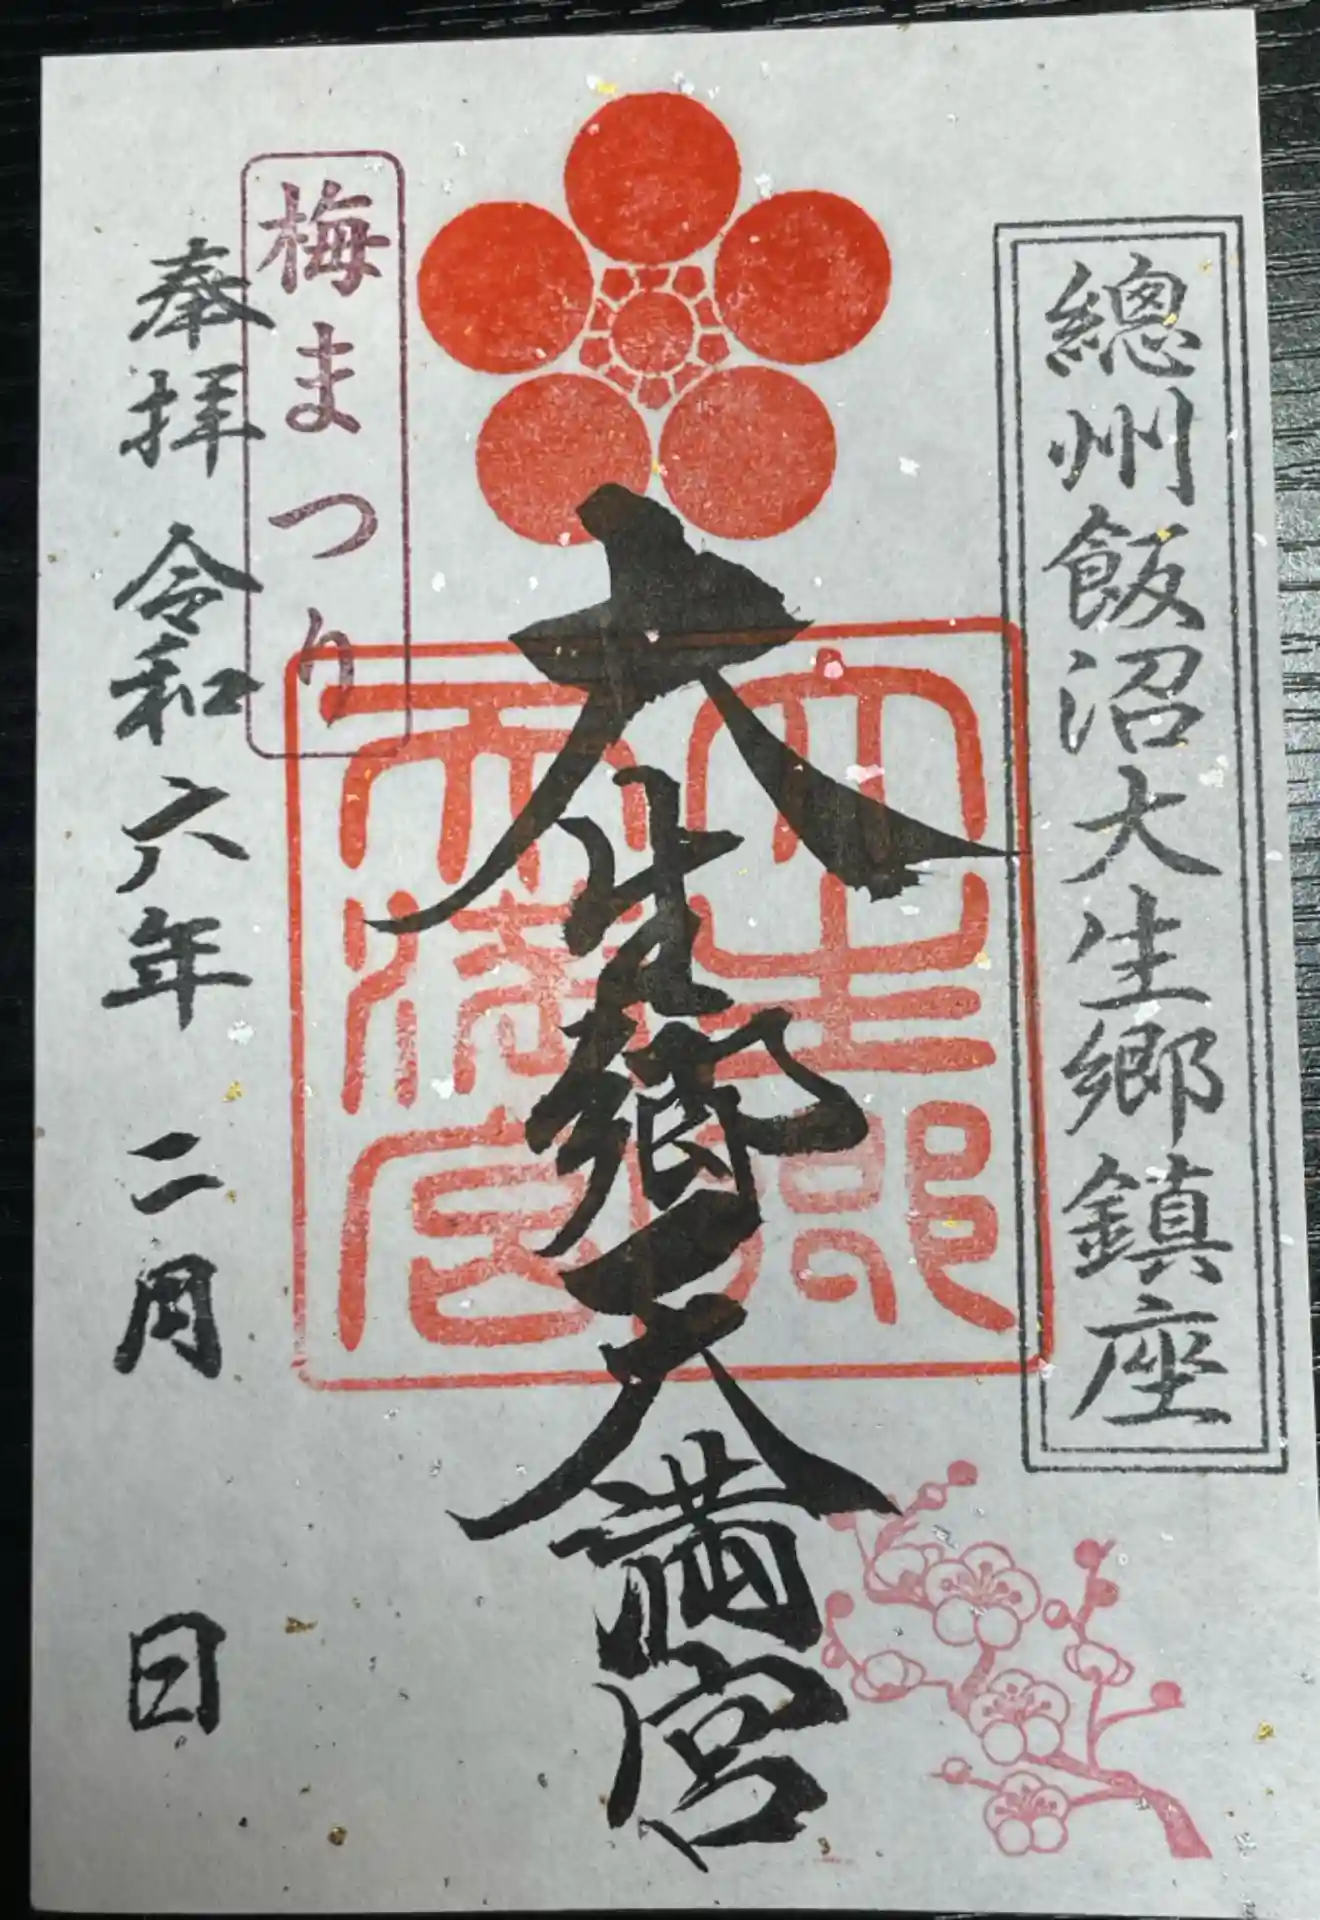 總州飯沼大生郷鎮座
大生郷天満宮
大生郷
天満宮
梅まつり
奉拝 令和六年 二月 日